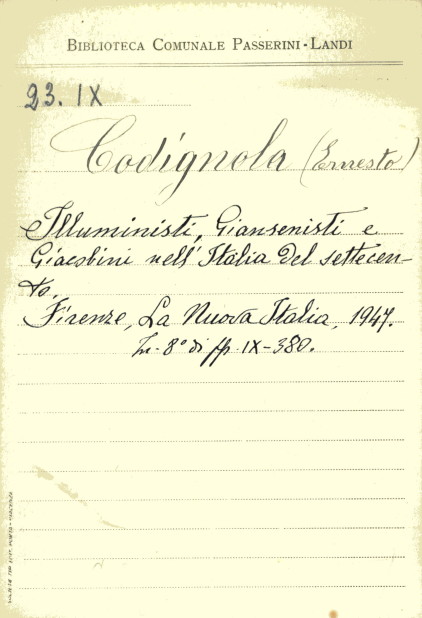 BIBLIOTECA COMUNALE PASSERINI-LANDI
23. IX
Codignola (Ernesto)
Illuministi, Giansenisti e
Giacobini nell'Italia del settecen-
to.
Firenze, La Nuova Italia, 1947.
In-8° di pp. IX-380.